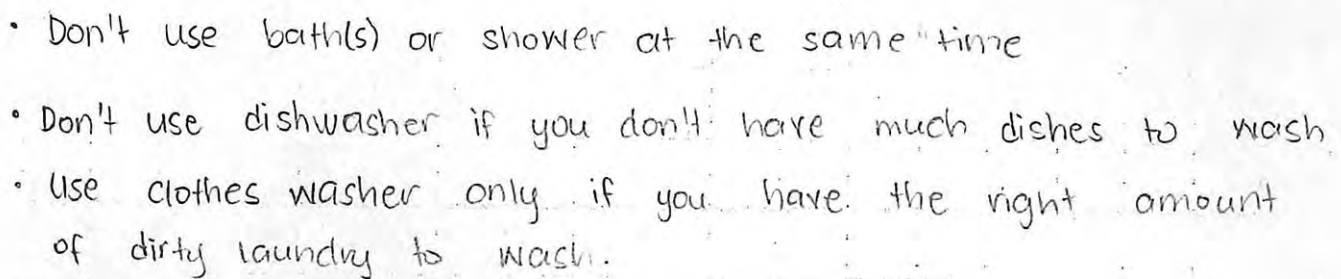 • Don't use bath(s) or shower at the same time
• Don't use dishwasher if you don't have much dishes to wash
• Use clothes washer only if you have the right amount
of dirty laundry to wash.